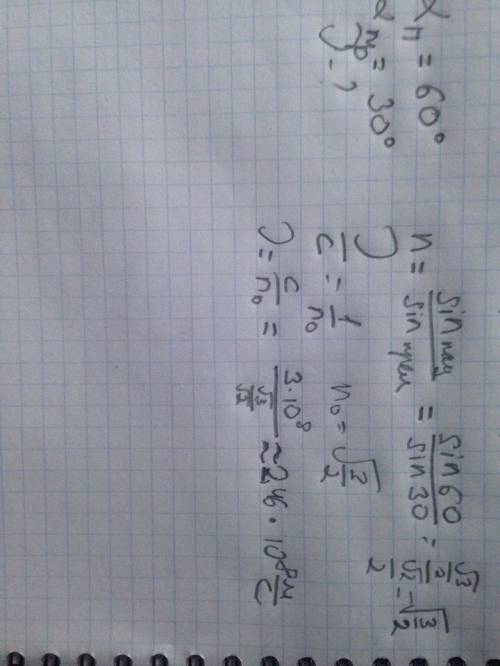 α п = 60°
α пр = 30°
υ - ?
n = sin пад / sin прел = sin 60 / sin 30 = (√3/2) / (√2/2) = √(3/2)
υ/c = 1/n₀ n₀ = √(3/2)
υ = c/n₀ = 3·10⁸ / (√3/√2) ≈ 2,46 · 10⁸ м/с